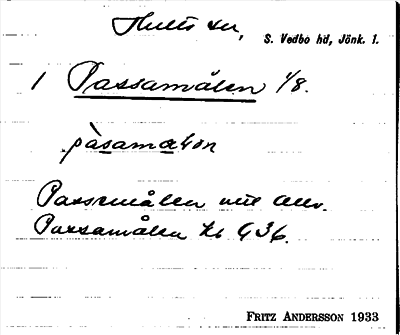 Hults sn, S. Vedbo hd, Jönk. l.
1 Passamålen 1/8.
pàsamalon
Passemålen
Passamålen Kb 436.
FRITZ ANDERSSON 1933